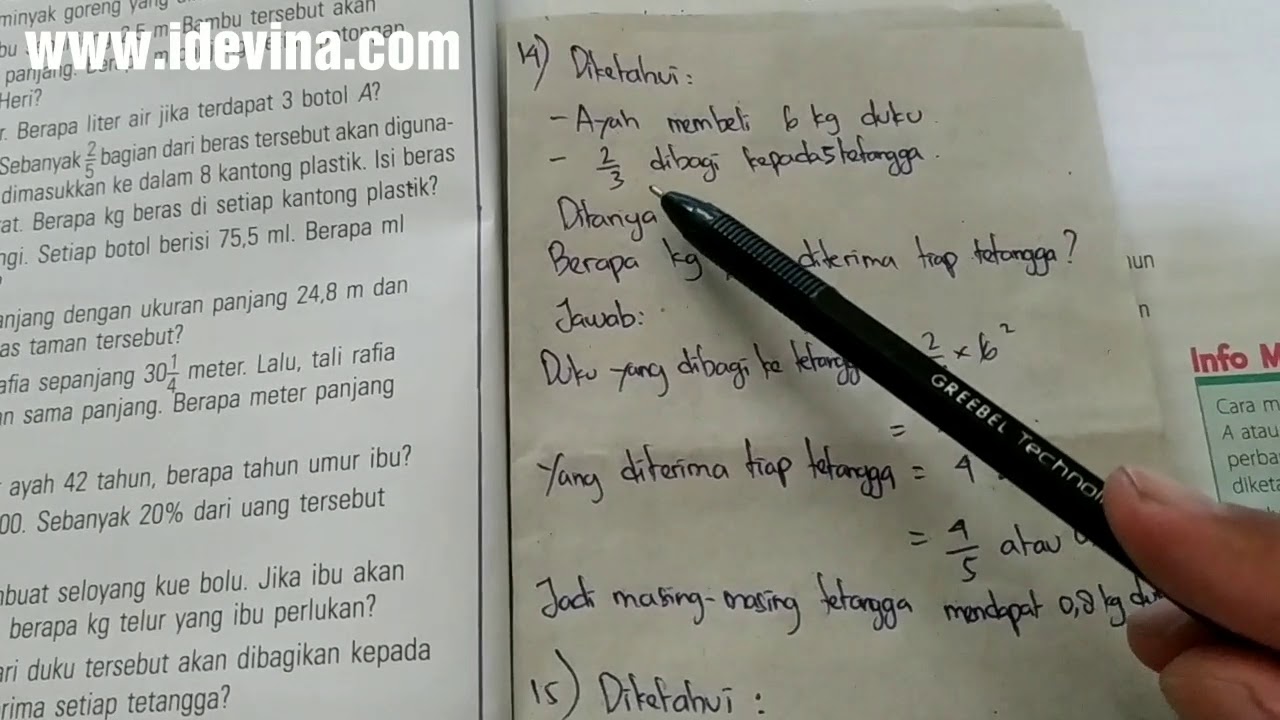 www.idevina.com
minyak goreng yang
2,5 m. Bambu tersebut akan
panjang.
Heri?
r. Berapa liter air jika terdapat 3 botol A?
Sebanyak 2/5 bagian dari beras tersebut akan diguna-
dimasukkan ke dalam 8 kantong plastik. Isi beras
at. Berapa kg beras di setiap kantong plastik?
ngi. Setiap botol berisi 75,5 ml. Berapa ml
anjang dengan ukuran panjang 24,8 m dan
as taman tersebut?
afia sepanjang 30 1/4 meter. Lalu, tali rafia
n sama panjang. Berapa meter panjang
ayah 42 tahun, berapa tahun umur ibu?
00. Sebanyak 20% dari uang tersebut
mbuat seloyang kue bolu. Jika ibu akan
berapa kg telur yang ibu perlukan?
ari duku tersebut akan dibagikan kepada
rima setiap tetangga?
14) Diketahui:
- Ayah membeli 6 kg duku.
- 2/3 dibagi kepada 5 tetangga.
Ditanya
Berapa kg diterima tiap tetangga?
Jawab:
Duku yang dibagi ke tetangga 2 × 6 2
=
Yang diterima tiap tetangga = 4
= 4/5 atau
Jadi masing-masing tetangga mendapat 0,8 kg
15) Diketahui:
GREEBEL Technol
un
n
Info M
Cara m
A atau
perba
diketa